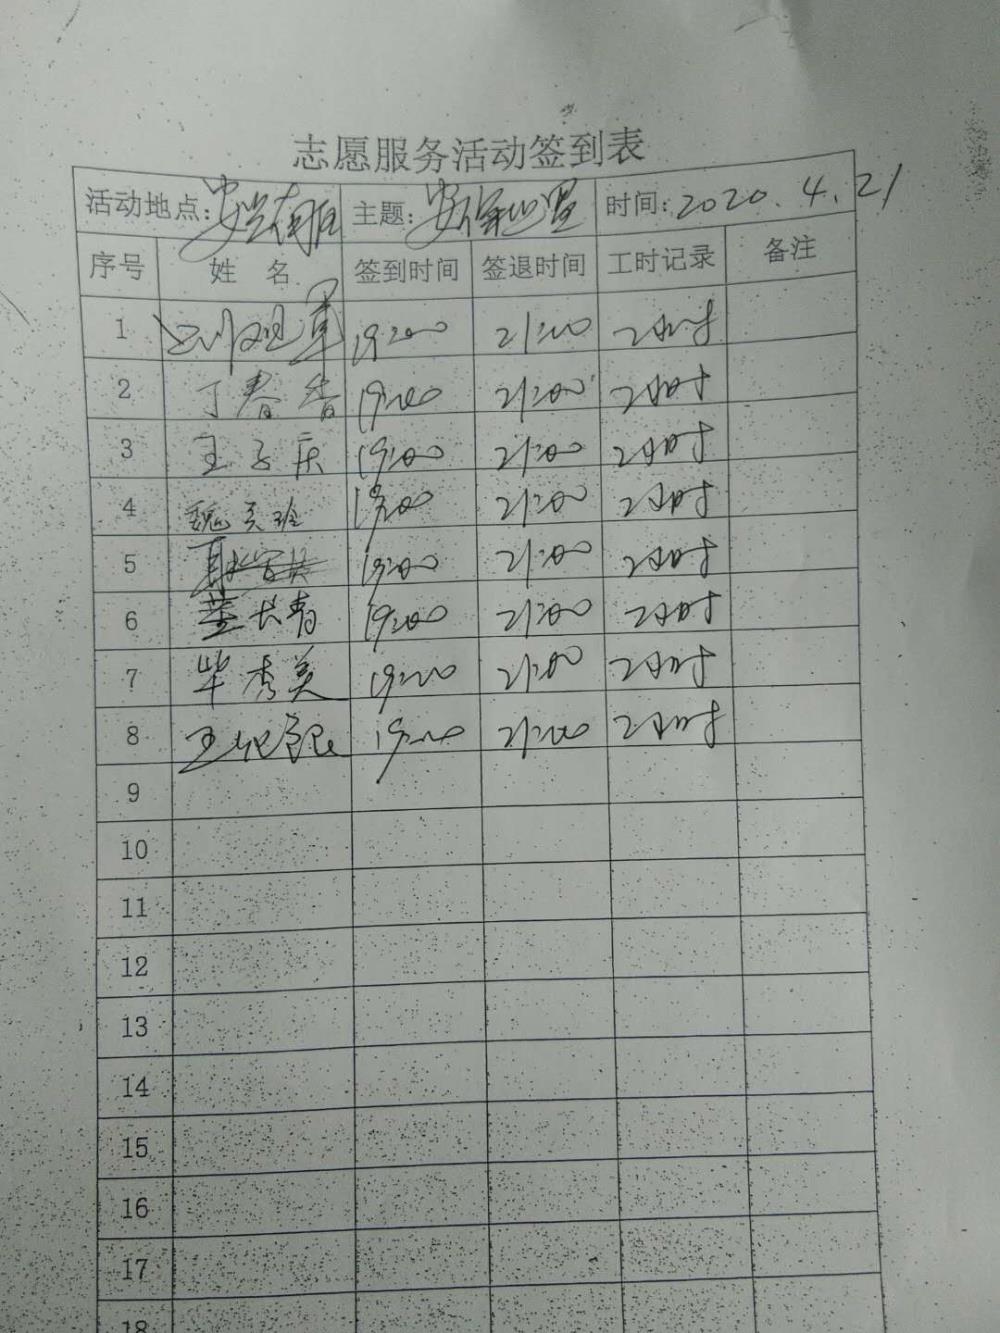 志愿服务活动签到表
活动地点: 安兴南区 主题: 安保巡逻 时间: 2020.4.21
序号 姓名 签到时间 签退时间 工时记录 备注
1 19:00 21:00 2小时
2 丁春香 19:00 21:00 2小时
3 王子庆 19:00 21:00 2小时
4 魏 玲 19:00 21:00 2小时
5 19:00 21:00 2小时
6 董长青 19:00 21:00 2小时
7 毕秀美 19:00 21:00 2小时
8 王 19:00 21:00 2小时
9
10
11
12
13
14
15
16
17
18